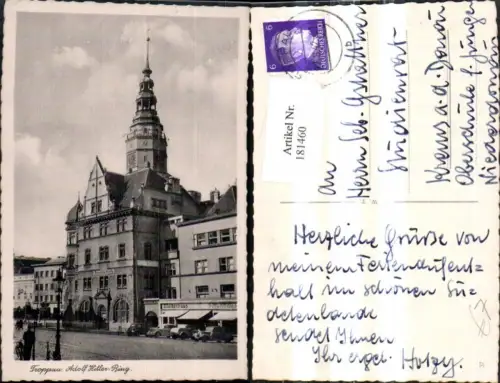 Troppau Adolf Hitler-Ring
6
6
DEUTSCHES REICH
Artikel Nr.
181460
An
Herrn Seb. Gstettner
Studienrat
Krems a. d. Donau
Oberschule f. Jungen
Niederdonau
Herzliche Grüße von
meinem Ferienaufent-
halt im schönen Su-
detenlande
sendet Ihnen
Ihr ergeb. Hotzy.